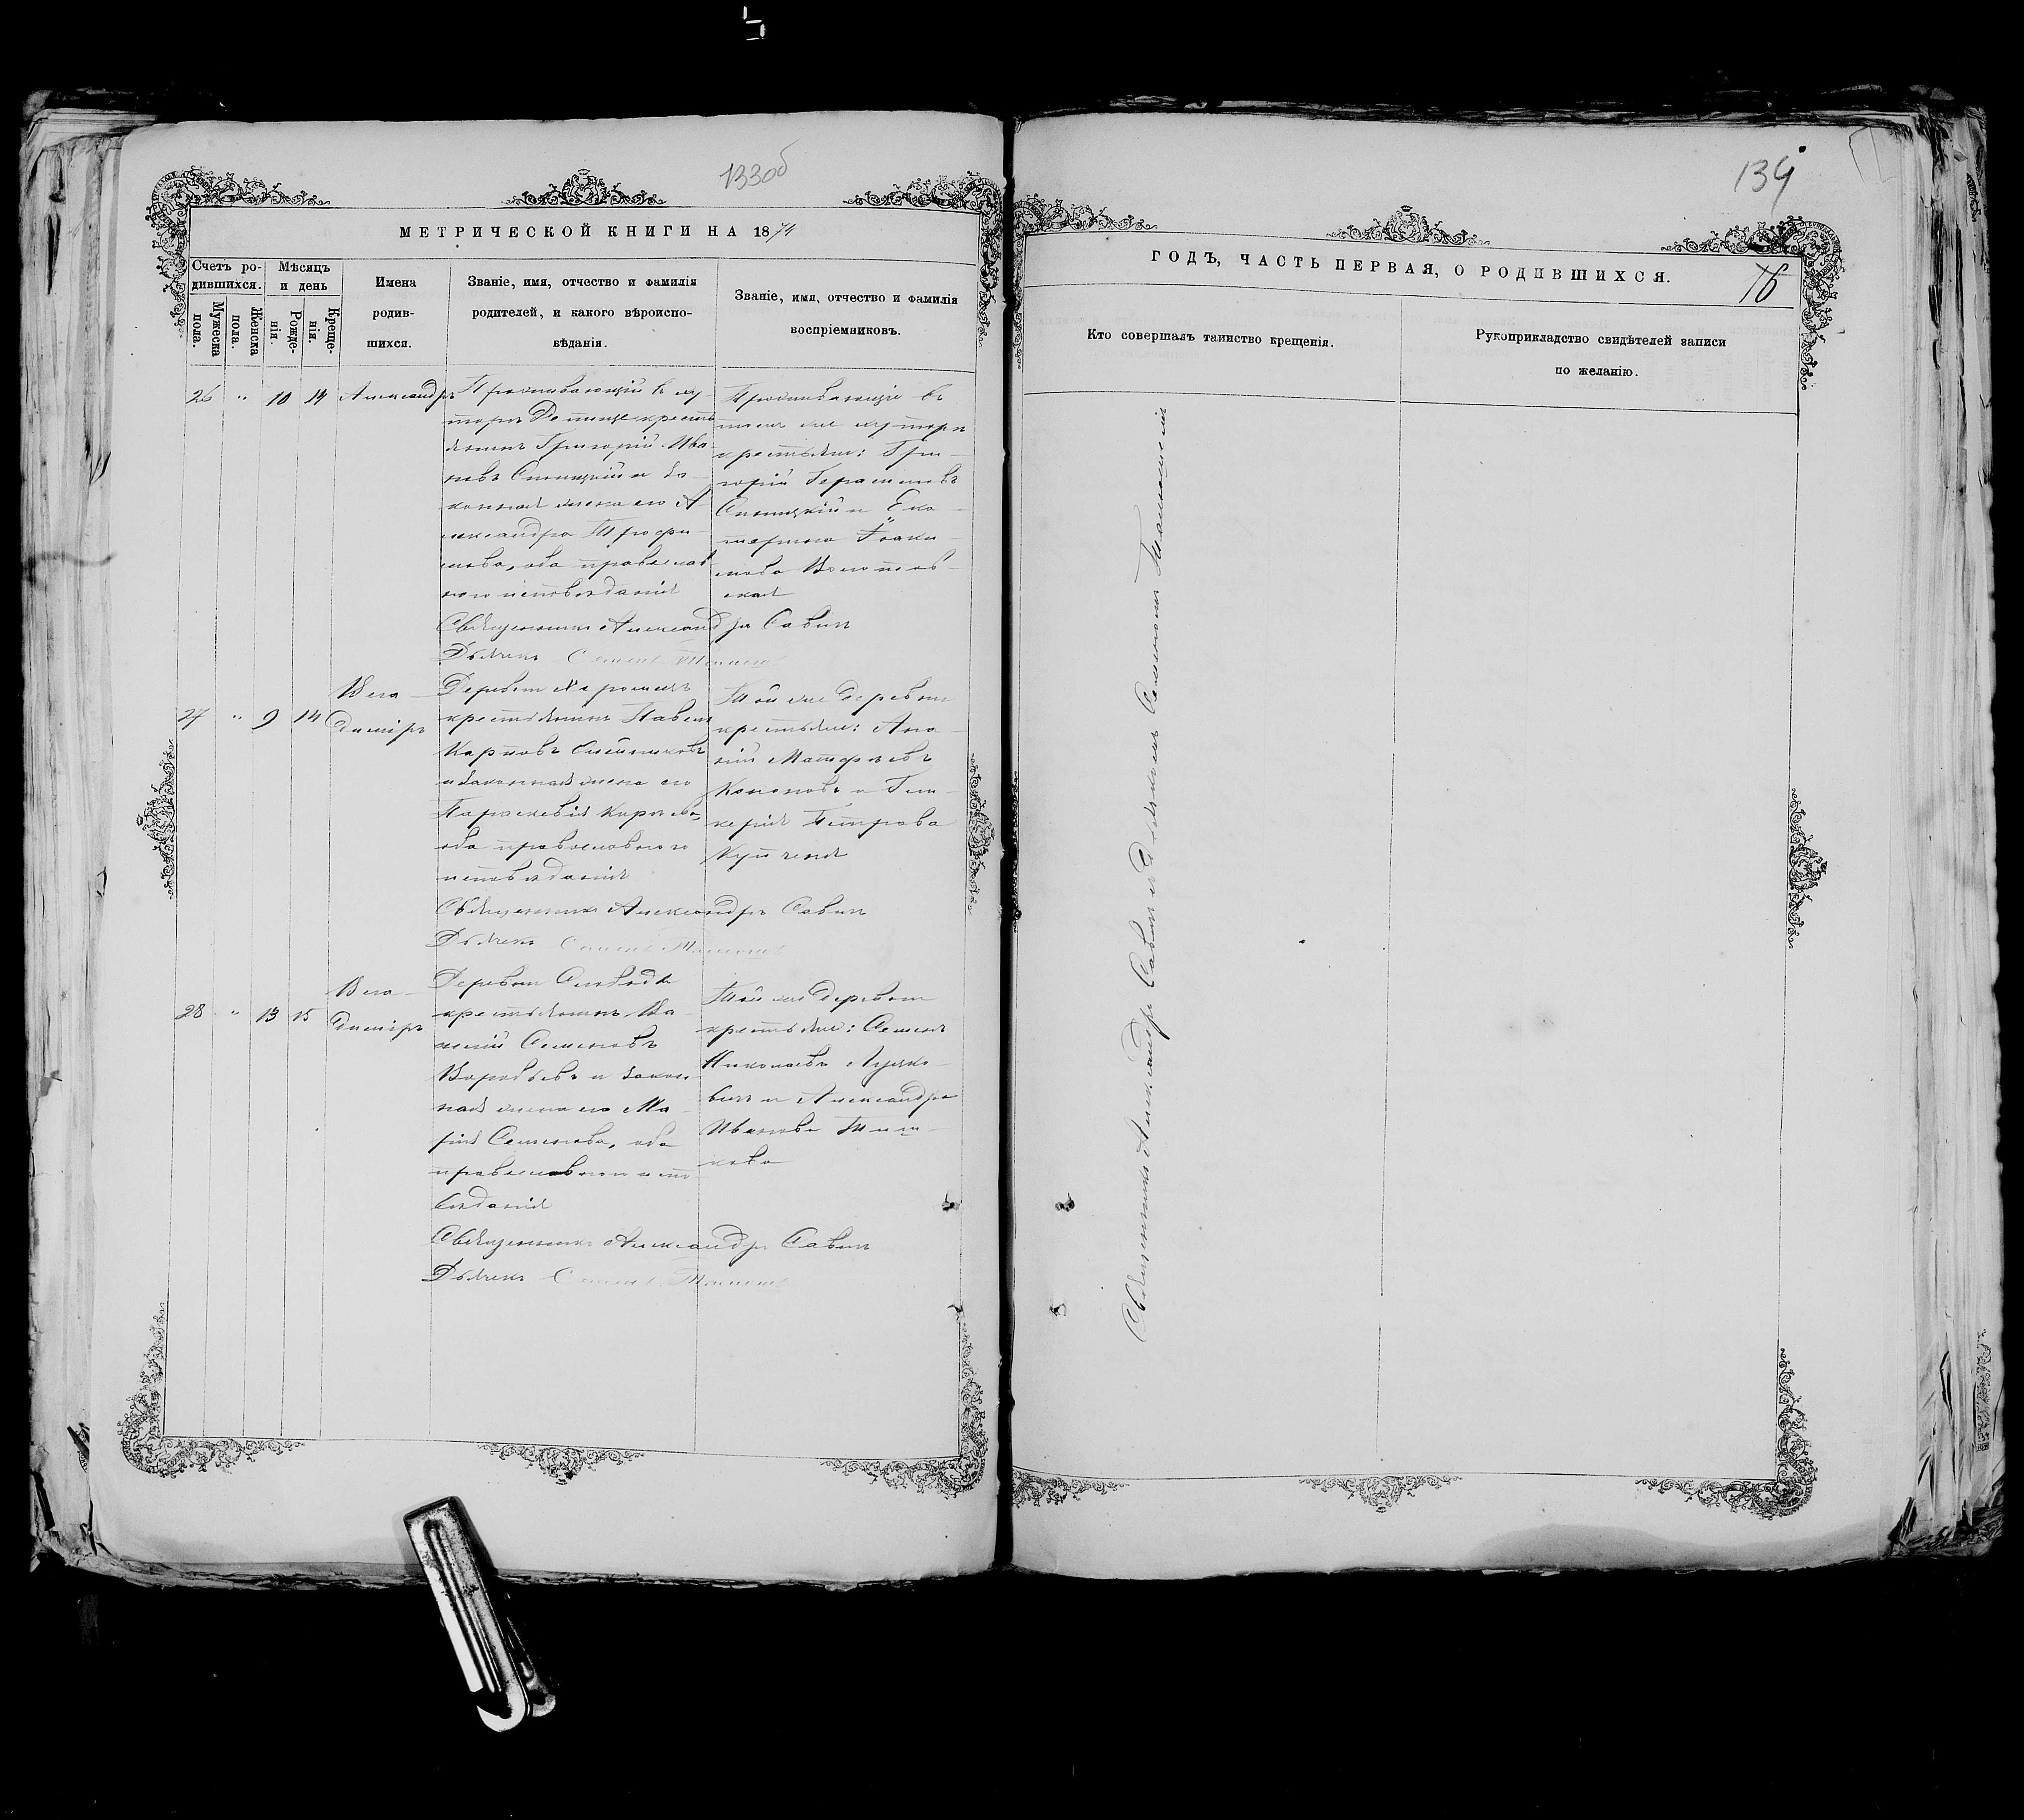 133об
МЕТРИЧЕСКОЙ КНИГИ НА 1874
Счетъ ро-
дившихся.
Мужеска
пола.
Женска
пола.
Мѣсяцъ
и день
Рожде-
нія.
Креще-
нія.
Имена
родив-
шихся.
Званіе, имя, отчество и фамилія
родителей, и какого вѣроиспо-
вѣданія.
Званіе, имя, отчество и фамилія
воспріемниковъ.
26 " 10 14 Александръ
Проживающій въ ху-
торѣ крестья-
нинъ Григорій Ива-
новъ Синицкій и за-
конная жена его А-
лександра Трофи-
мова, оба православ-
наго исповѣданія
Проживающіе въ
томъ же хуторѣ
крестьяне: Гри-
горій Герасимовъ
Синицкій и Ека-
терина Іоаки-
мова
Священникъ Александръ Савинъ
Дьячекъ Семенъ
27 " 9 14
Вла-
диміръ
Деревни
крестьянинъ Павелъ
Карповъ
и законная жена его
Параскевія Кирѣева,
оба православнаго
исповѣданія
Той же деревни
крестьяне:
Матфѣевъ
Кононовъ и Гли-
керія Петрова
Священникъ Александръ Савинъ
Дьячекъ Семенъ
28 " 13 15
Вла-
диміръ
Деревни Слободы
крестьянинъ Ва-
силій Семеновъ
Воробьевъ и закон-
ная жена его Ма-
рія Семенова, оба
православнаго испо-
вѣданія
Той же деревни
крестьяне: Семенъ
Николаевъ
и Александра
Иванова
Священникъ Александръ Савинъ
Дьячекъ Семенъ
134
ГОДЪ, ЧАСТЬ ПЕРВАЯ, О РОДИВШИХСЯ.
16
Кто совершалъ таинство крещенія.
Рукоприкладство свидѣтелей записи
по желанію.
Священникъ Александръ Савинъ съ Дьячкомъ Семеномъ